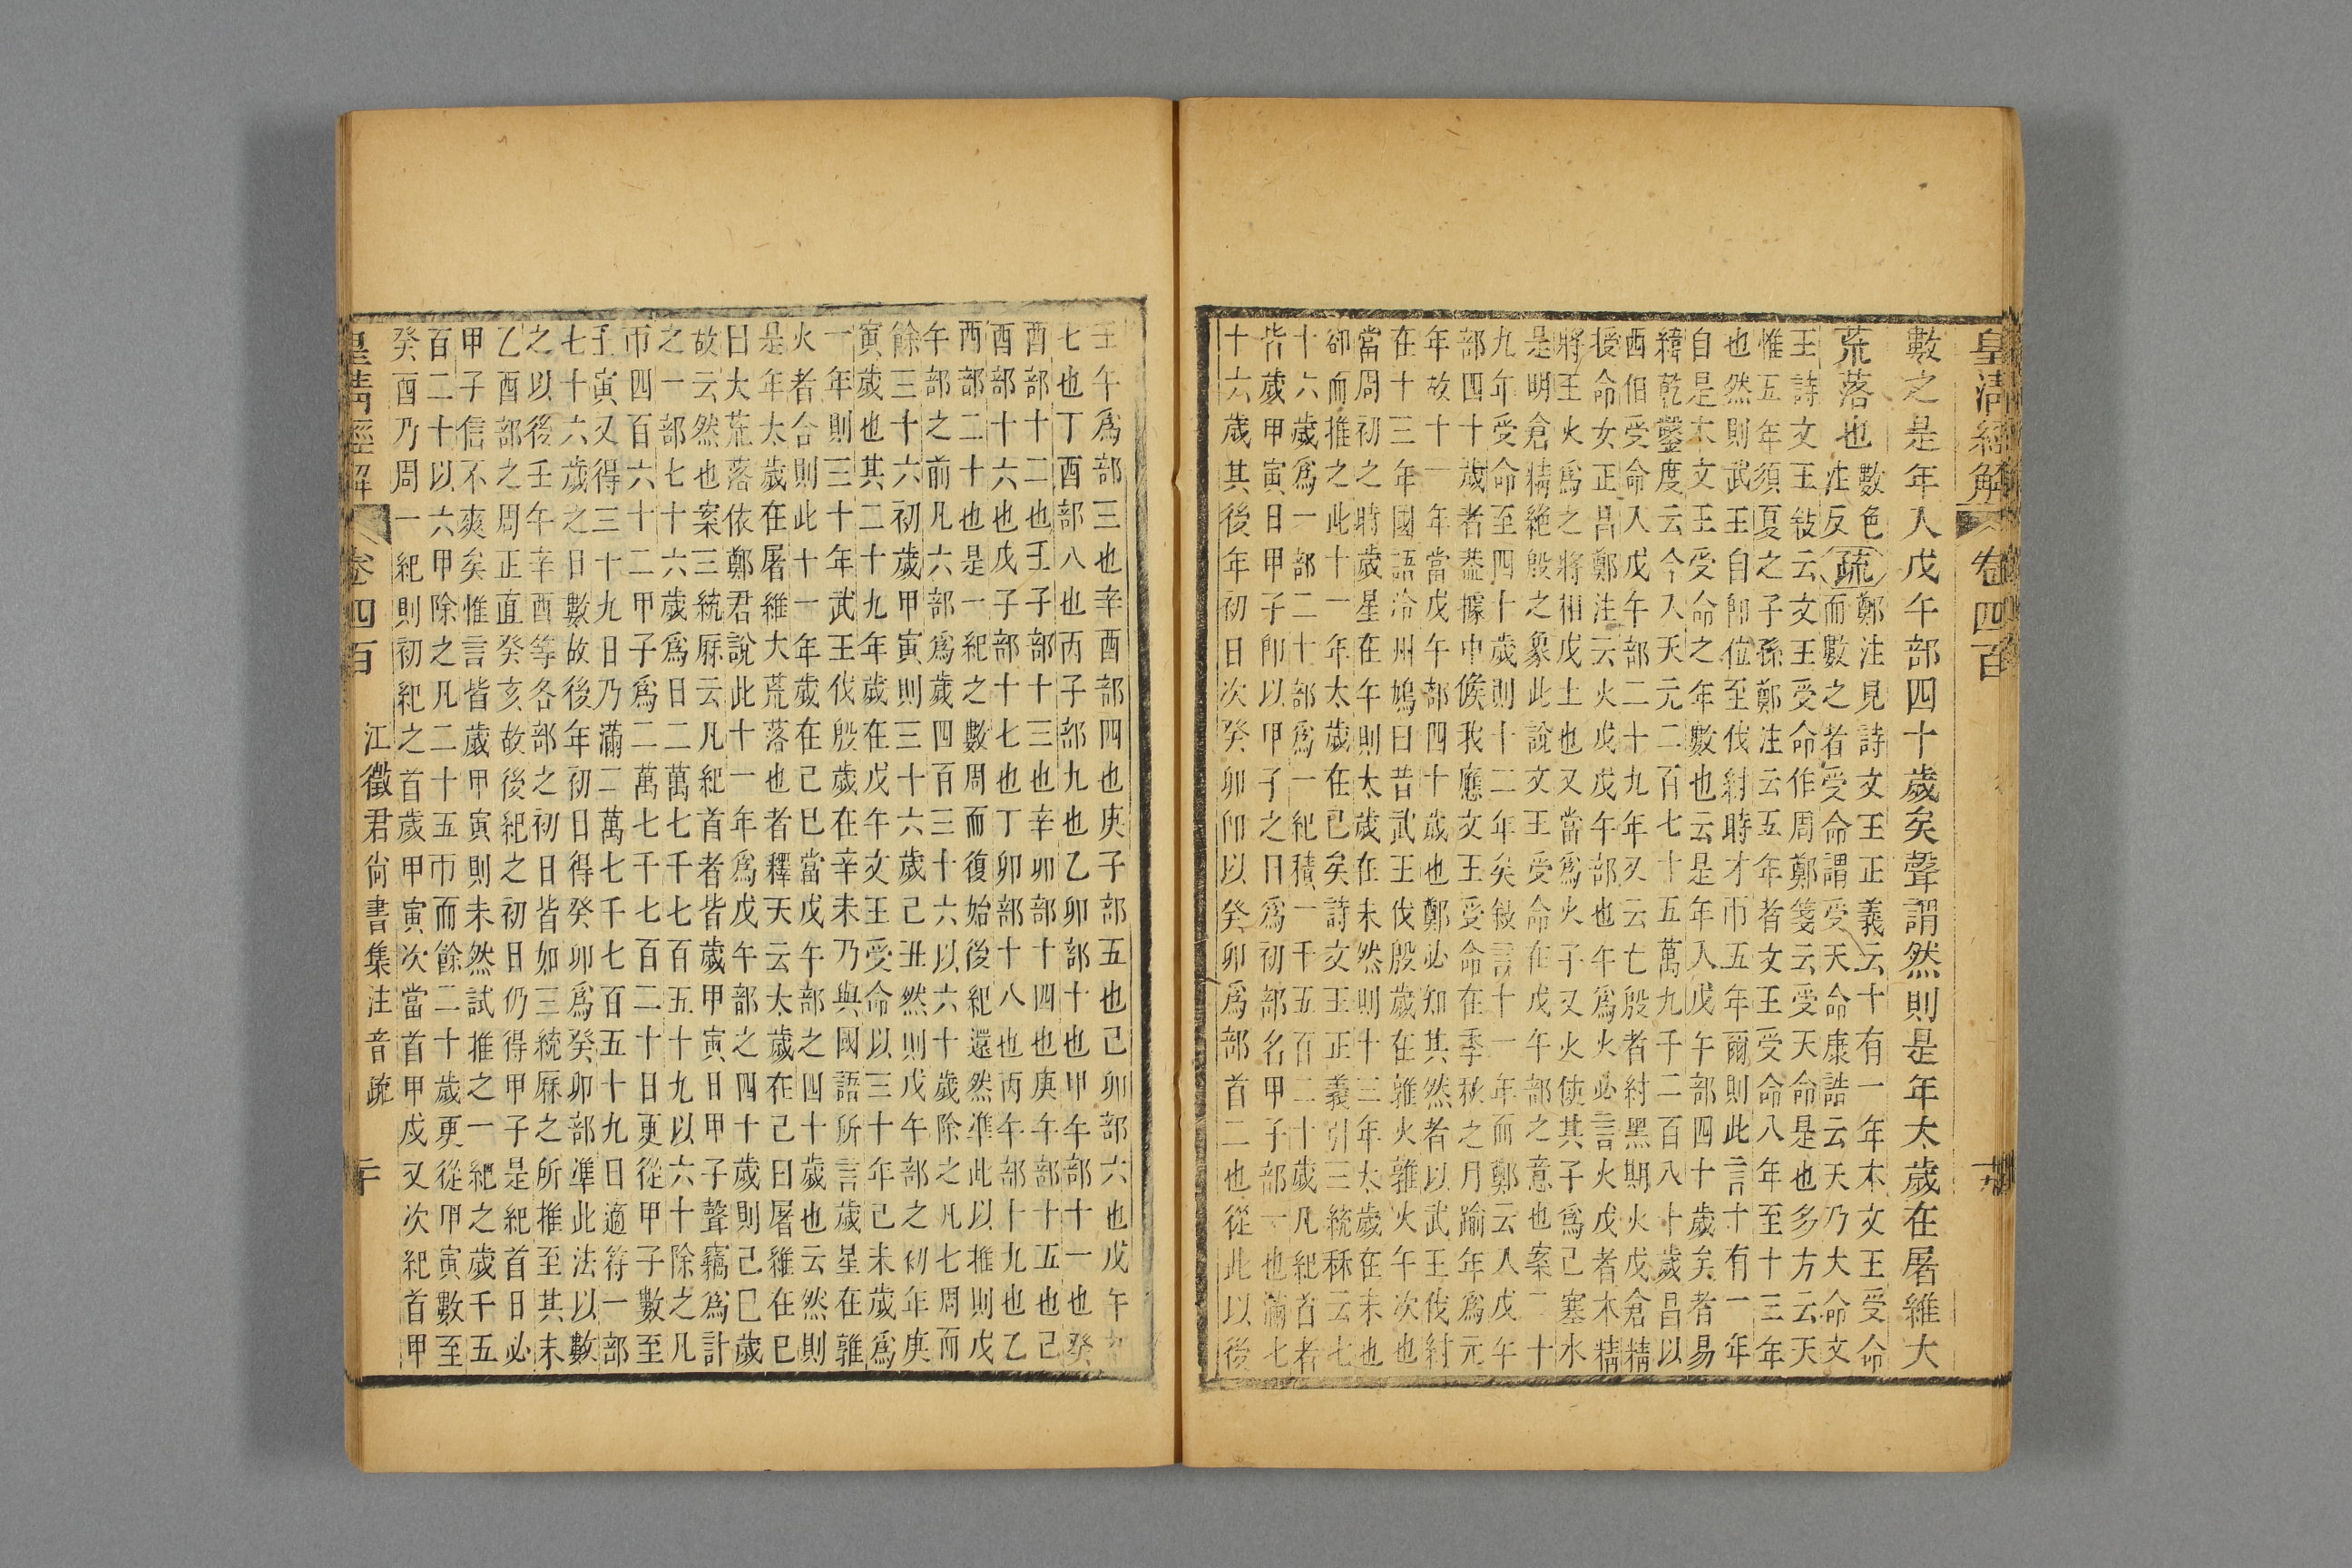 皇清經解 卷四百 十九
數之是年入戊午部四十歲矣聲謂然則是年太歲在屠維大
荒落也
數色
注反
疏
鄭注見詩文王正義云十有一年本文王受命
而數之者受命謂受天命康誥云天乃大命文
王詩文王敍云文王受命作周鄭箋云受天命是也多方云天
惟五年須夏之子孫鄭注云五年者文王受命八年至十三年
也然則武王自卽位至伐紂時才帀五年爾則此言十有一年
自是本文王受命之年數也云是年入戊午部四十歲矣者易
緯乾鑿度云今入天元二百七十五萬九千二百八十歲昌以
西伯受命入戊午部二十九年又云亡殷者紂黑期火戊倉精
授命女正昌鄭注云火戊戊午部也午爲火必言火戊者木精
將王火爲之將相戊土也又當爲火子又火使其子爲己塞水
是明倉精絶殷之象此說文王受命在戊午部之意也案二十
九年受命至四十歲則十二年矣敍言十一年而鄭云入戊午
部四十歲者葢據中候我應文王受命在季秋之月踰年爲元
年故十一年當戊午部四十歲也鄭必知其然者以武王伐紂
在十三年國語泠州鳩曰昔武王伐殷歲在鶉火鶉火午次也
當周初之時歲星在午則太歲在未然則十三年太歲在未也
卻而推之此十一年太歲在巳矣詩文王正義引三統秝云七
十六歲爲一部二十部爲一紀積一千五百二十歲凡紀首者
皆歲甲寅日甲子卽以甲子之日爲初部名甲子部一也滿七
十六歲其後年初日次癸卯卽以癸卯爲部首二也從此以後
壬午爲部三也辛酉部四也庚子部五也己卯部六也戊午部
七也丁酉部八也丙子部九也乙卯部十也甲午部十一也癸
酉部十二也壬子部十三也辛卯部十四也庚午部十五也己
酉部十六也戊子部十七也丁卯部十八也丙午部十九也乙
酉部二十也是一紀之數周而復始後紀還然準此以推則戊
午部之前凡六部爲歲四百三十六以六十歲除之凡七周而
餘三十六初歲甲寅則三十六歲己丑然則戊午部之初年庚
寅歲也其二十九年歲在戊午文王受命以三十年己未歲爲
一年則三十年武王伐殷歲在辛未乃與國語所言歲星在鶉
火者合則此十一年歲在己巳當戊午部之四十歲也云然則
是年太歲在屠維大荒落也者釋天云太歲在己曰屠維在巳
曰大荒落依鄭君說此十一年爲戊午部之四十歲則己巳歲
故云然也案三統厤云凡紀首者皆歲甲寅日甲子聲竊爲計
之一部七十六歲爲日二萬七千七百五十九以六十除之凡
帀四百六十二甲子爲二萬七千七百二十日更從甲子數至
壬寅又得三十九日乃滿二萬七千七百五十九日適符一部
七十六歲之日數故後年初日得癸卯爲癸卯部準此法以數
之以後壬午辛酉等各部之初日皆如三統厤之所推至其末
乙酉部之周正直癸亥故後紀之初日仍得甲子是紀首日必
甲子信不爽矣惟言皆歲甲寅則未然試推之一紀之歲千五
百二十以六甲除之凡二十五帀而餘二十歲更從甲寅數至
癸酉乃周一紀則初紀之首歲甲寅次當首甲戌又次紀首甲
皇清經解 卷四百 江徵君尙書集注音疏 二十